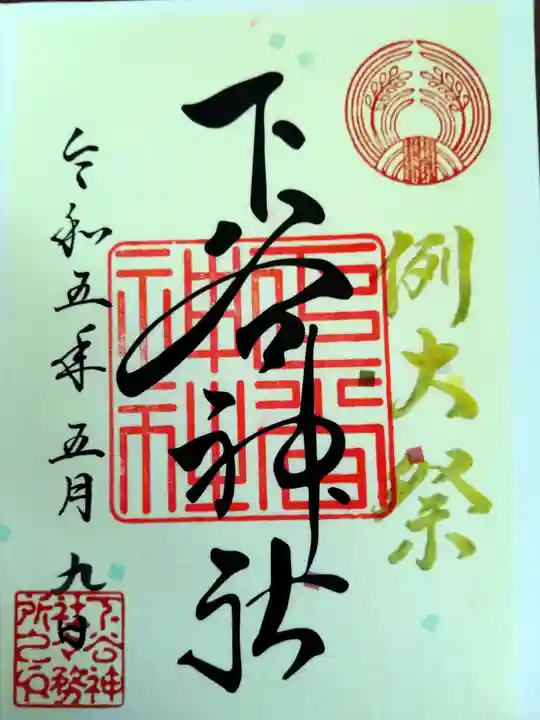 例大祭
下谷神社
令和五年五月九日
下谷神社
下谷神
社務
所之印